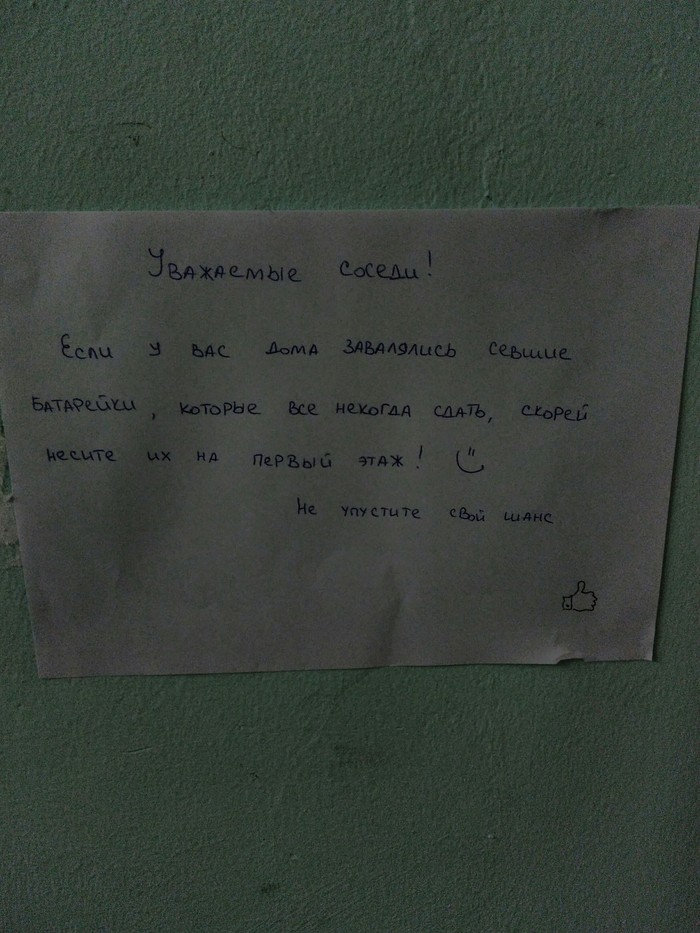 Уважаемые соседи!
Если у вас дома завалялись севшие
батарейки, которые все некогда сдать, скорей
несите их на первый этаж!
Не упустите свой шанс